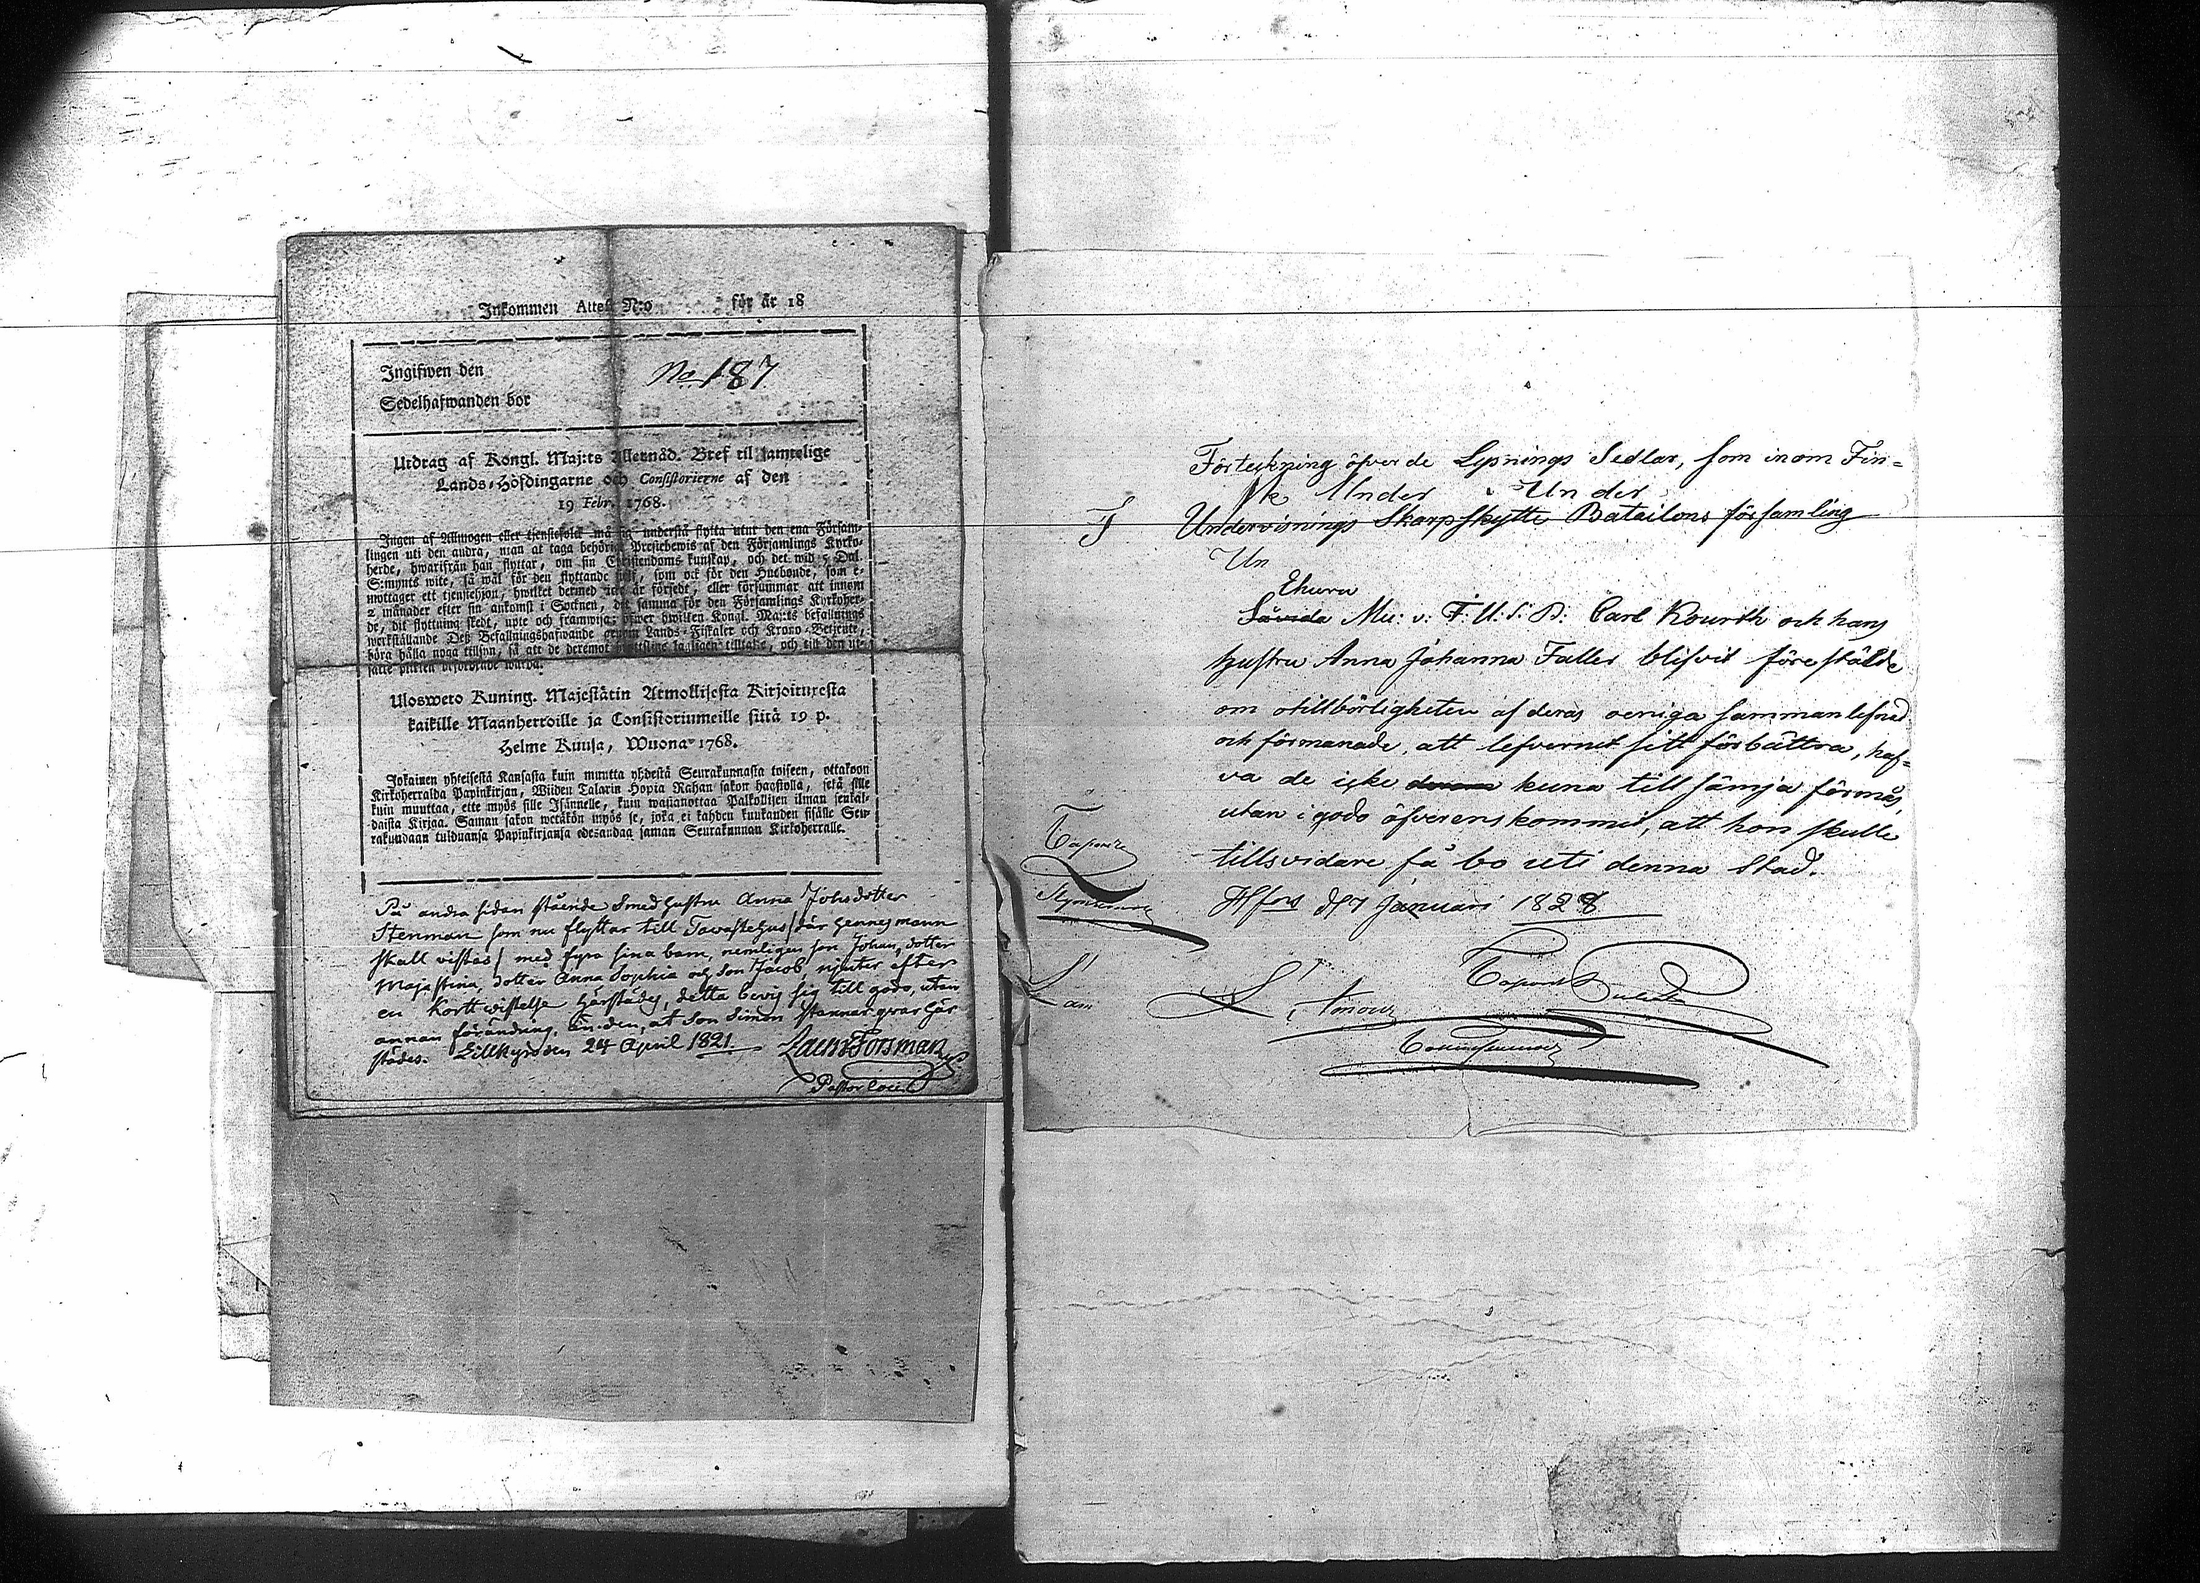 Inkommen Attest N:o för år 18
Ingifwen den
No 187
Sedelhafwanden bor
Utdrag af Kongl. Maj:ts Allernåd. Bref til samtelige
Lands-Höfdingarne och Consistorierne af den
19 Febr. 1768.
Ingen af Allmogen eller tjenstefolck må sig understå flytta utur den ena Försam-
lingen uti den andra, utan at taga behörigt Prestebewis af den Församlings Kyrko-
herde, hwarifrån han flyttar, om sin Christendoms kunskap, och det wid 5 Dal.
S:mynts wite, så wäl för den flyttande sielf, som ock för den Husbonde, som e-
mottager ett tjenstehjon, hwilket dermed icke är försedt, eller försummar att innom
2 månader efter sin ankomst i Socknen, det samma för den Församlings Kyrkoher-
de, dit flyttning skedt, upte och framwisa; öfwer hwilken Kongl. Maj:ts befallnings
werkställande Deß Befallningshafwande genom Lands-Fiskaler och Krono-Betjente,
böra hålla noga tillsyn, så att de deremot
Uloswetο Kuning. Majestätin Armollisesta Kirjoituxesta
kaikille Maanherroille ja Consistoriumeille siitä 19 p.
Helme Kuusa, Wuona 1768.
Jokainen yhteisestä Kansasta kuin muutta yhdestä Seurakunnasta toiseen, ottakoon
Kirkoherralda Papinkirjan, Wiiden Talarin Hopia Rahan sakon haastolla, sekä sille
kuin muuttaa, ette myös sille Isännelle, kuin wastanottaa Palkollisen ilman senkal-
daista Kirjaa. Saman sakon wetäkön myös se, joka ei kahden kuukauden sisälle Seu-
rakundaan tulduansa Papinkirjansa edesanda saman Seurakunnan Kirkoherralle.
På andra sidan stående Smedhustru Anna Johsdotter
Stenman som nu flyttar till Tavastehus (där hennes mann
skall vistas) med fyra sina barn, nemligen son Johan, dotter
Maja Stina, dotter Anna Sophia och Son Jacob, njuter efter
en kort wistelse härstädes, detta bevis sig till godo, utan
annan förändring, än den, at Son Simon stannar qvar här
städes. Lillkyro den 24 April 1821.
Forsman
Pastor
Förteckning öfver de Lysnings Sedlar, som inom Fin-
sk Under Under
Undervisnings Skarpskytte Batailons församling
Un
Ehuru
Såvida Mu: v: F: U: S: B: Carl Kourth och hans
hustru Anna Johanna Faller blifvit föreställde
om otillbörligheten af deras oeniga sammanlefnad
och förmanade, att lefvernet sitt förbättra, haf-
va de icke kuna till sämja förmås,
utan i godo öfverenskommit, att hon skulle
tillsvidare få bo uti denna Stad.
Hfors d 7 Januari 1828